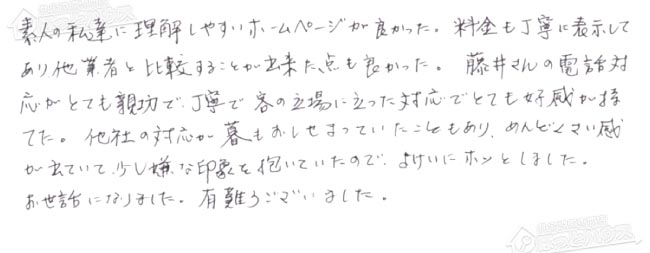 素人の私達に理解しやすいホームページが良かった。料金も丁寧に表示して
あり他業者と比較することが出来た点も良かった。藤井さんの電話対
応がとても親切で、丁寧で客の立場に立った対応でとても好感が持
てた。他社の対応が暮もおしせまっていたこともあり、めんどくさい感
が出ていて、少し嫌な印象を抱いていたので、よけいにホッとしました。
お世話になりました。有難うございました。